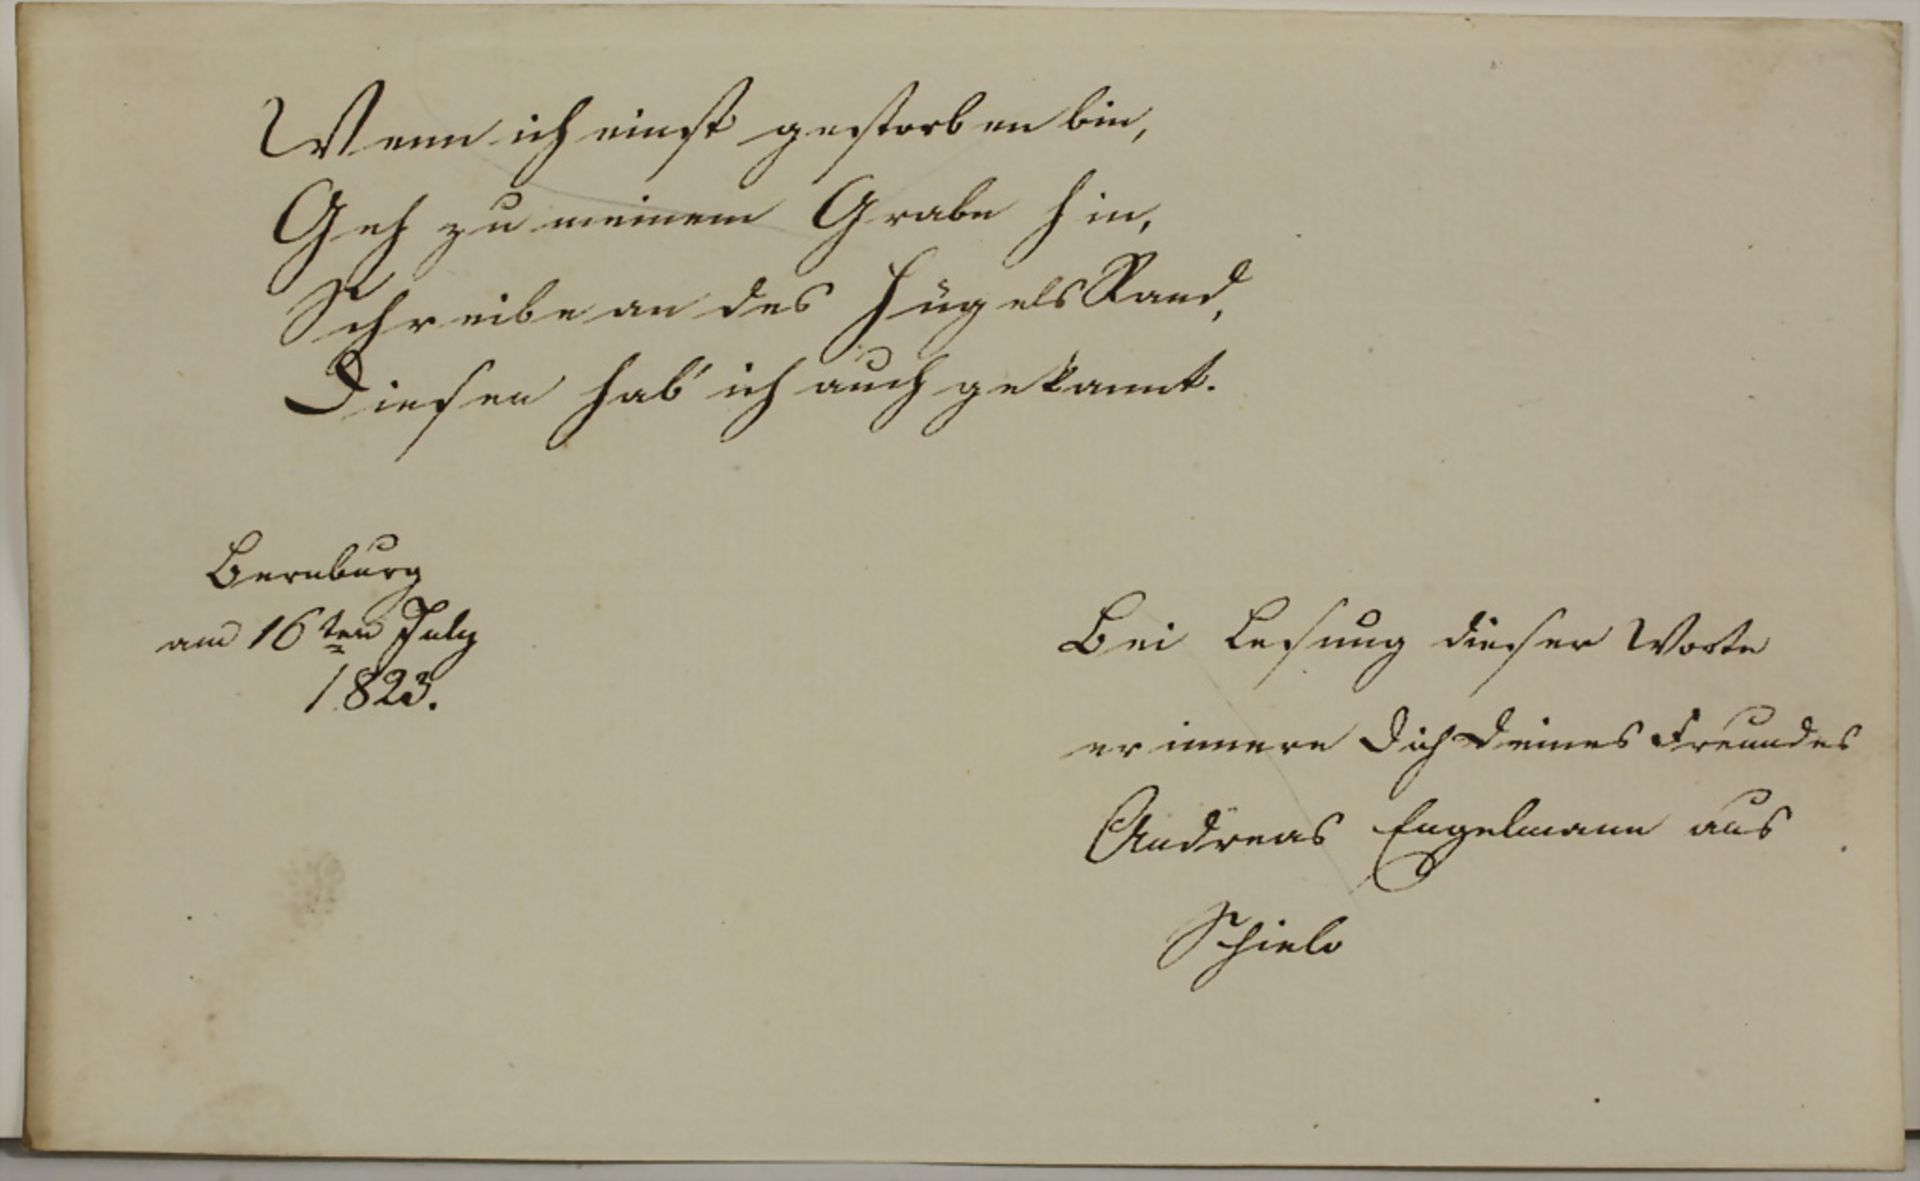 Wenn ich einst gestorben bin,
Geh zu meinem Grabe hin,
Schreibe an des Hügels Rand,
Diesen hab' ich auch gekannt.
Bernburg
am 16ten July
1823.
Bei Lesung dieser Worte
erinnere Dich Deines Freundes
Andreas Engelmann aus
Schielo